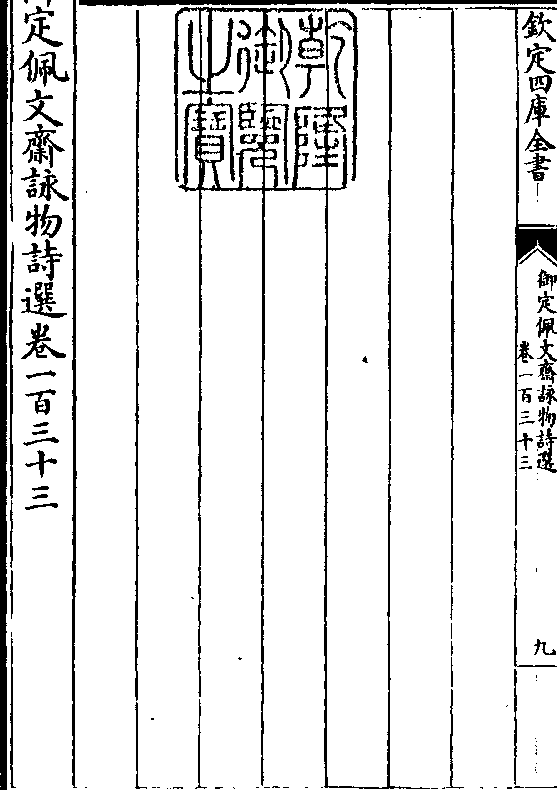 欽定四庫全書
御定佩文齋詠物詩選
卷一百三十三
九
乾隆
御覽
之寶
御定佩文齋詠物詩選卷一百三十三